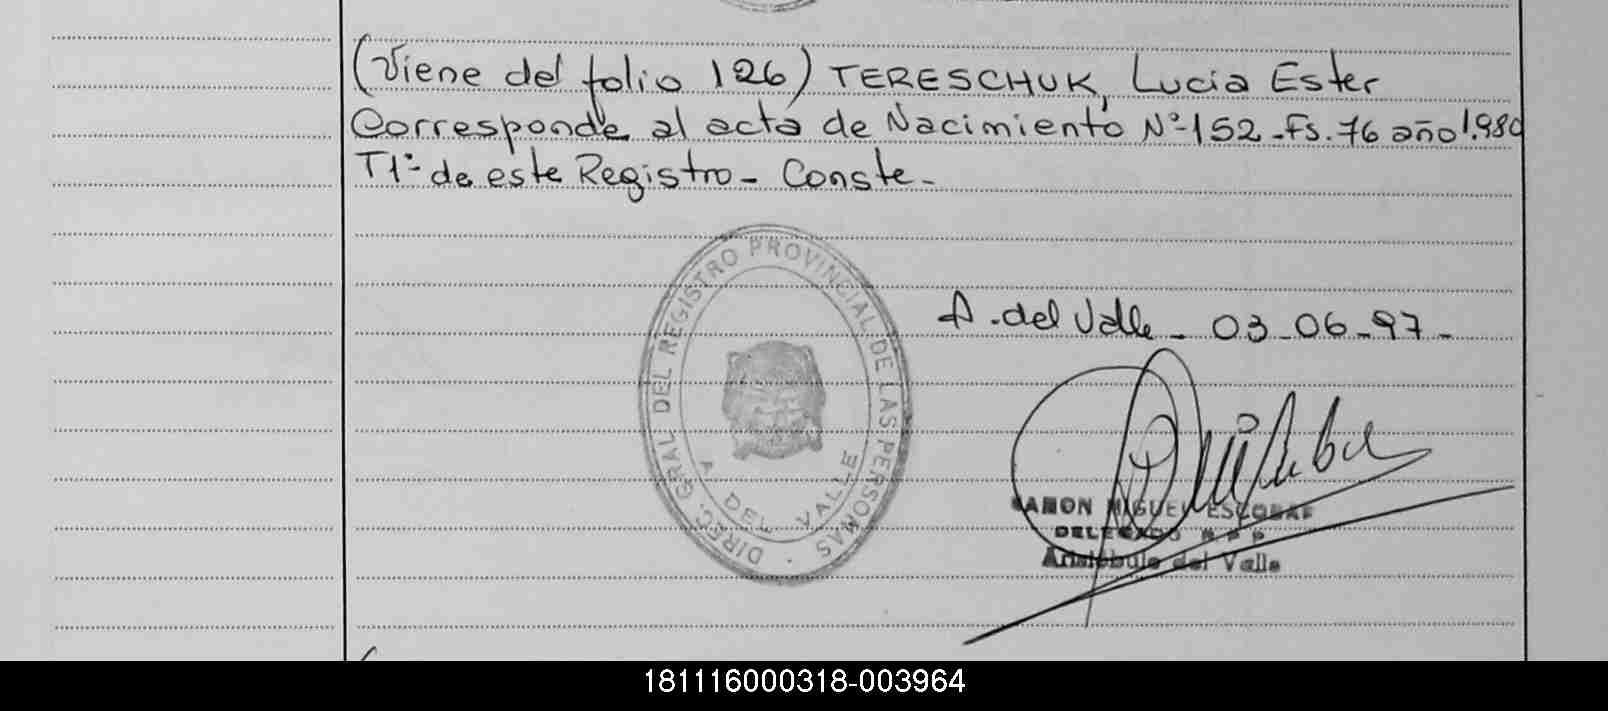 (Viene del folio 126) TERESCHUK, Lucia Ester
Corresponde al acta de Nacimiento Nº-152-Fs. 76 año 1.980
T1º de este Registro - Conste -
DIREC. GRAL DEL REGISTRO PROVINCIAL DE LAS PERSONAS
A. DEL VALLE
A. del Valle - 03-06-97-
RAMON MIGUEL ESCOBAR
DELEGADO R P P
Aristóbulo del Valle
181116000318-003964